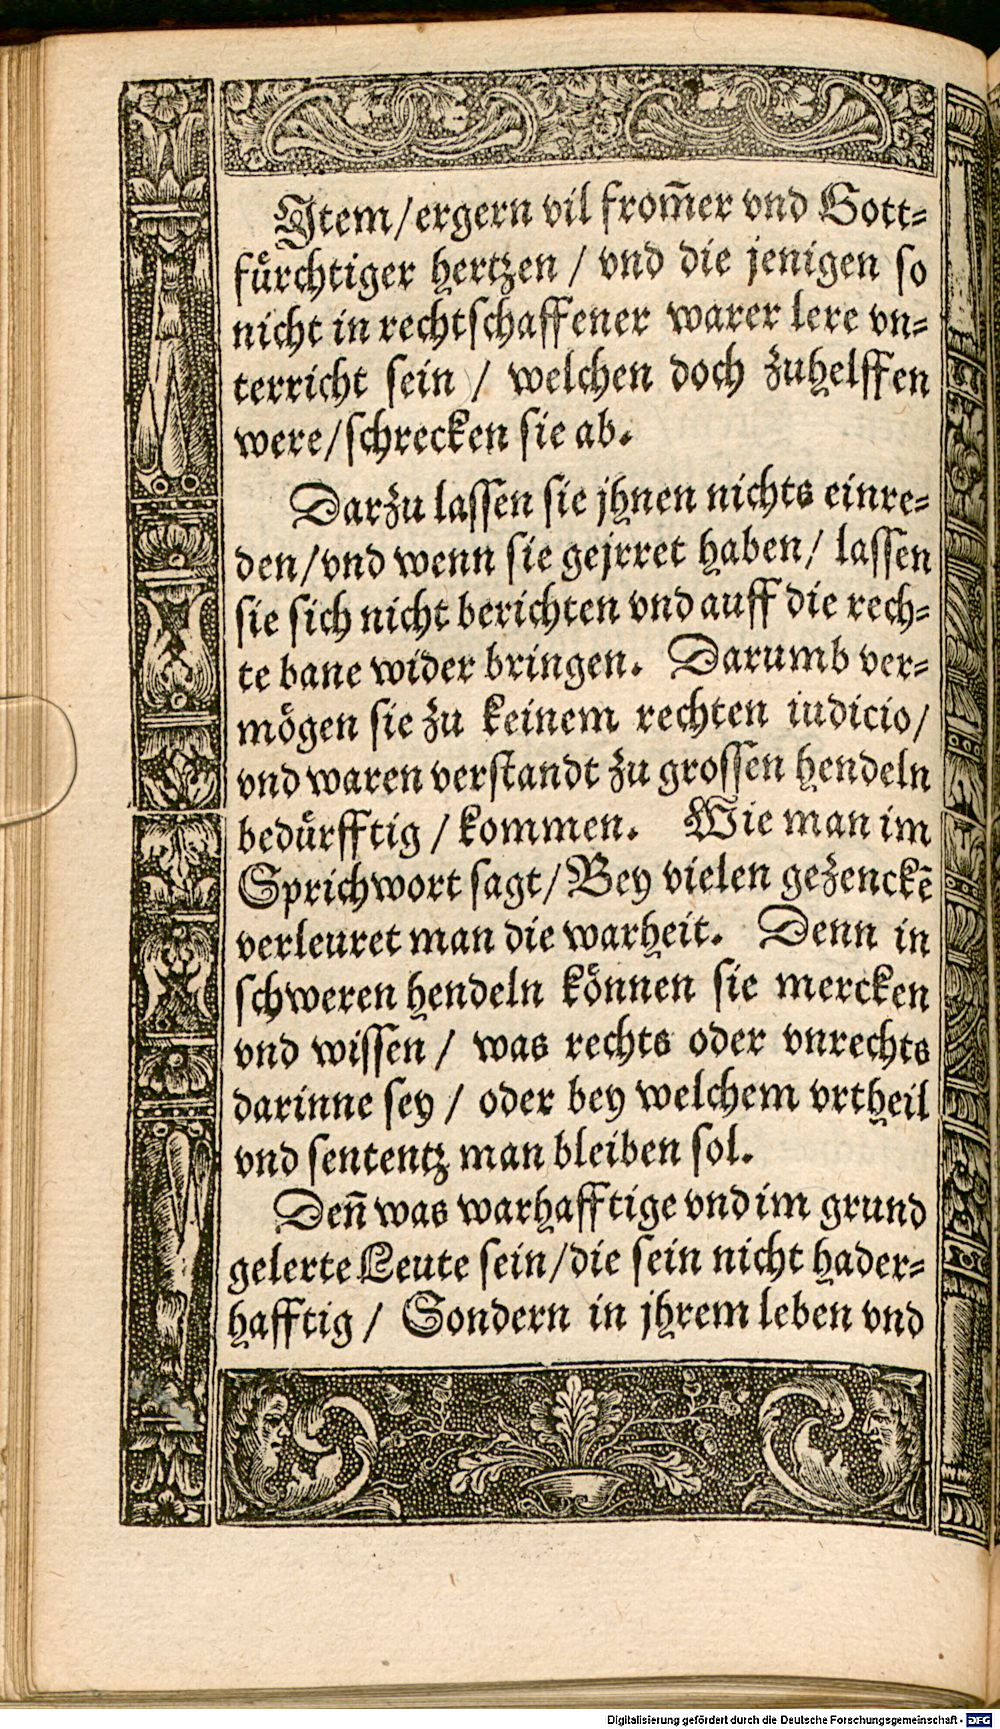 Jtem/ergern vil from̃er vnd Gott⸗
fuͤrchtiger hertzen / vnd die jenigen so
nicht in rechtschaffener warer lere vn⸗
terricht sein / welchen doch zuhelffen
were/schrecken sie ab.
Darzu lassen sie jhnen nichts einre⸗
den/vnd wenn sie gejrret haben/ lassen
sie sich nicht berichten vnd auff die rech⸗
te bane wider bringen. Darumb ver⸗
moͤgen sie zu keinem rechten iudicio/
vnd waren verstandt zu grossen hendeln
beduͤrfftig / kommen. Wie man im
Sprichwort sagt/Bey vielen gezenckē
verleuret man die warheit. Denn in
schweren hendeln koͤnnen sie mercken
vnd wissen / was rechts oder vnrechts
darinne sey / oder bey welchem vrtheil
vnd sententz man bleiben sol.
Den̄ was warhafftige vnd im grund
gelerte Leute sein/die sein nicht hader⸗
hafftig / Sondern in jhrem leben vnd
Digitalisierung gefördert durch die Deutsche Forschungsgemeinschaft - DFG